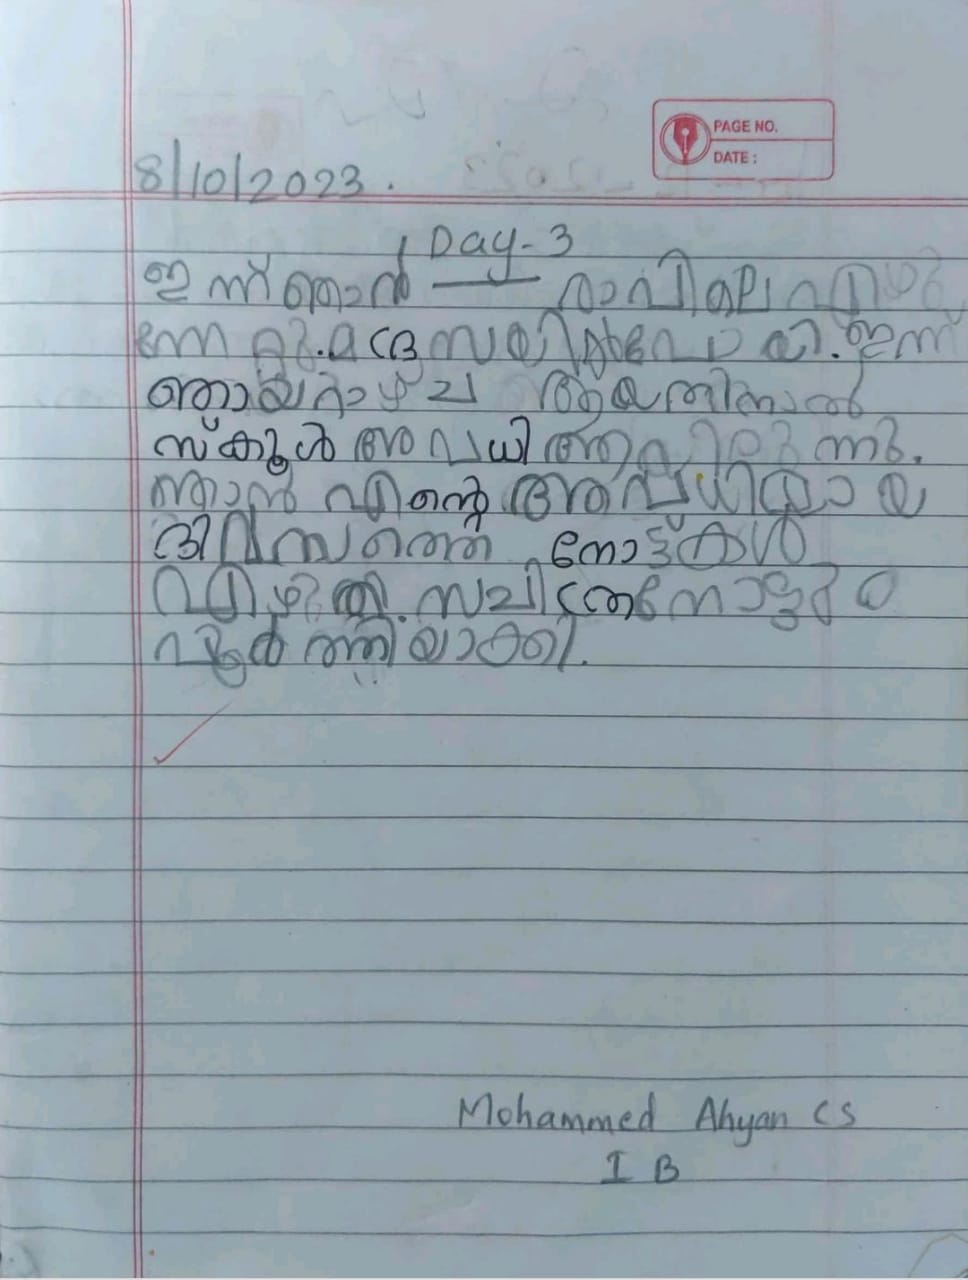 PAGE NO.
DATE :
8/10/2023.
Day-3
ഇന്ന് ഞാൻ രാവിലെ എഴു
ന്നേറ്റു. മദ്രസയിൽ പോയി. ഇന്ന്
ഞായറാഴ്ച ആയതിനാൽ
സ്കൂൾ അവധി ആയിരുന്നു.
ഞാൻ എന്റെ അവധിയായ
ദിവസത്തെ നോട്ട്കൾ
എഴുതി. സചിത്ര നോട്ടും
പൂർത്തിയാക്കി.
Mohammed Ahyan CS
I B